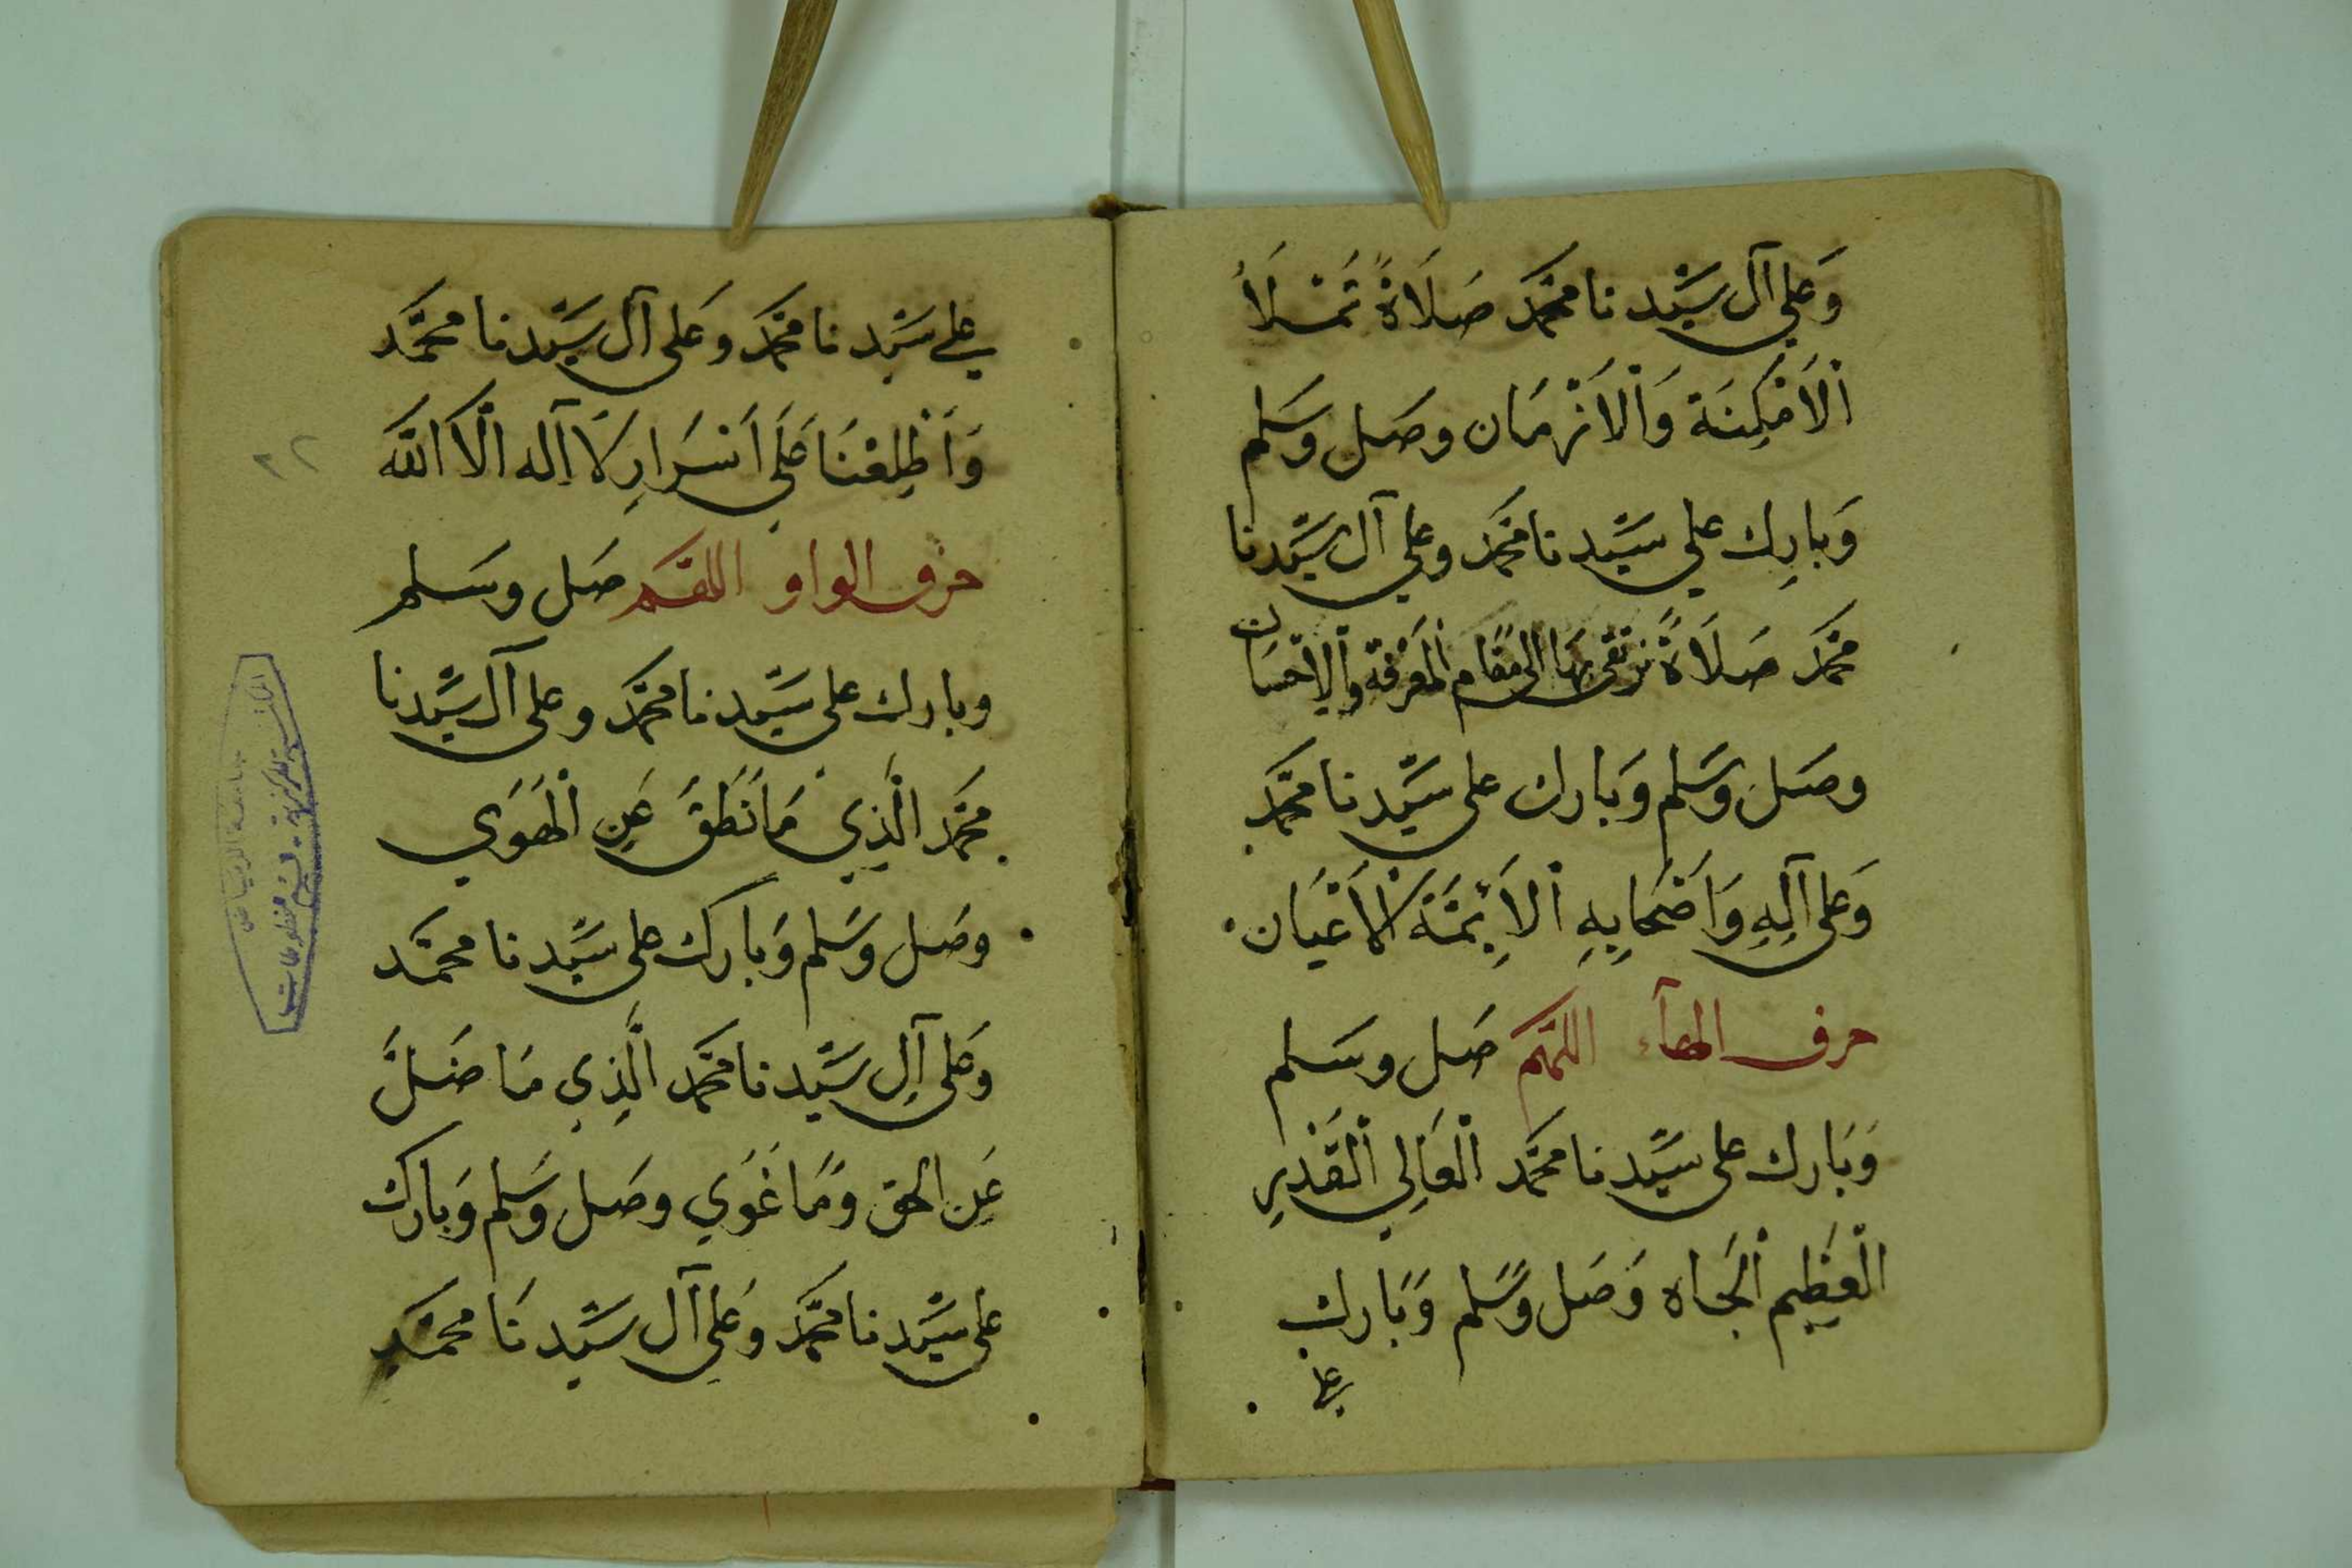 وَعَلي آل سَيِّدنا محَمَّد صَلَاةً تَمْلَأُ
اْلاَمْكِنَة وَاْلاَزْمَان وصَل وَسَلم
وَبارِك علي سَيِّدنا محَمَّد وعلي آل سَيِّدنا
محَمَّد صَلَاةً نرْتَقى بهَا الى مقَام اْلمَعْرفَة وَاْلاِحْسَان
وصَل وَسَلم وَبَارك على سَيِّدنا محَمَّد
وَعَلى آلِهِ وَاَصْحَابِهِ اْلاَئِمَّة الْاَعْيَان
حرف الهآء اللهُمَّ صَل وسَلم
وَبَارك على سَيِّدنا محَمَّد اْلعَالِي اْلقَدْرِ
الْعَظِيم اْلجَاه وَصَل وَسَلم وَبَارك
على
على سَيِّدنا محَمَّد وَعَلى آل سَيِّدنا محَمَّد
وَاَطْلِعْنَا عَلَي اَسْرَارِ لَا اِله اِلَّا اللَّه
حرف الواو اللهُمَّ صَل وسَلم
وبارك على سَيِّدنا محَمَّد وعلى آل سَيِّدنا
محَمَّد الَّذِي مَا نَطَقَ عَنِ اْلهَوَي
وصَل وَسَلم وَبارك على سَيِّدنا محمَّد
وَعَلى آلِ سَيِّدنا محَمَّد الَّذِي مَا ضَلَّ
عَنِ الحق وَمَا غَوَي وصَل وَسَلم وَبارك
على سَيِّدنا محَمَّد وَعَلي آل سَيِّدنَا محمَّد
٢٢
جامعة الرياض
قسم المخطوطات